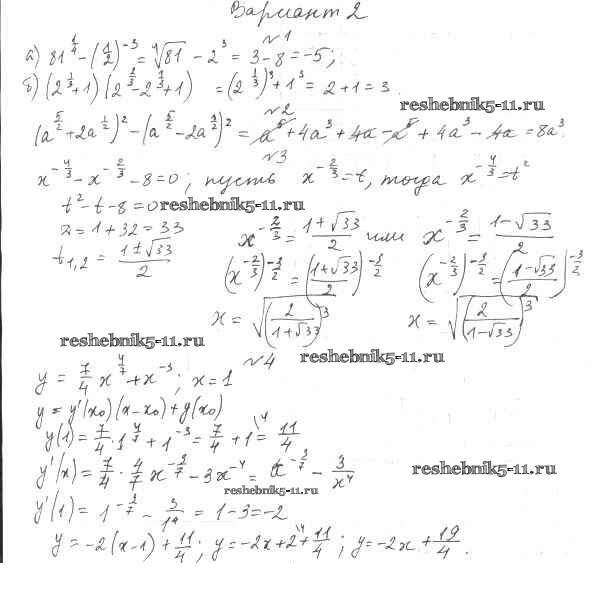 Вариант 2
№1
а) 81^(1/4) - (1/2)^(-3) = ⁴√81 - 2³ = 3 - 8 = -5;
б) (2^(1/3)+1)(2^(2/3)-2^(1/3)+1) = (2^(1/3))³ + 1³ = 2+1 = 3.
reshebnik5-11.ru
№2
(a^(5/2)+2a^(1/2))² - (a^(5/2)-2a^(1/2))² = a⁵+4a³+4a-a⁵+4a³-4a = 8a³.
№3
x^(-4/3) - x^(-2/3) - 8 = 0; пусть x^(-2/3) = t, тогда x^(-4/3) = t²
t² - t - 8 = 0 reshebnik5-11.ru
D = 1+32 = 33
t₁,₂ = (1±√33)/2
x^(-2/3) = (1+√33)/2 или x^(-2/3) = (1-√33)/2
(x^(-2/3))^(-3/2) = ((1+√33)/2)^(-3/2) (x^(-2/3))^(-3/2) = ((1-√33)/2)^(-3/2)
x = √(2/(1+√33))³ x = √(2/(1-√33))³
reshebnik5-11.ru
№4 reshebnik5-11.ru
y = 7/4 x^(4/7) + x^(-3); x = 1
y = y'(x₀)(x-x₀)+y(x₀)
y(1) = 7/4 · 1^(4/7) + 1^(-3) = 7/4 + 1^(\4) = 11/4
y'(x) = 7/4 · 4/7 x^(-3/7) - 3x^(-4) = x^(-3/7) - 3/x⁴
reshebnik5-11.ru
reshebnik5-11.ru
y'(1) = 1^(-3/7) - 3/1⁴ = 1-3 = -2
y = -2(x-1) + 11/4; y = -2x+2^(\4)+11/4; y = -2x+19/4.